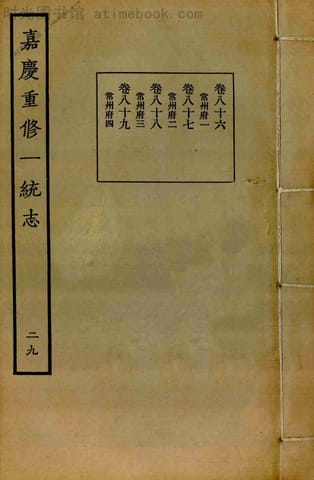 时光图书馆 www.atimebook.com
嘉慶重修一統志
二九
卷八十六
常州府一
卷八十七
常州府二
卷八十八
常州府三
卷八十九
常州府四